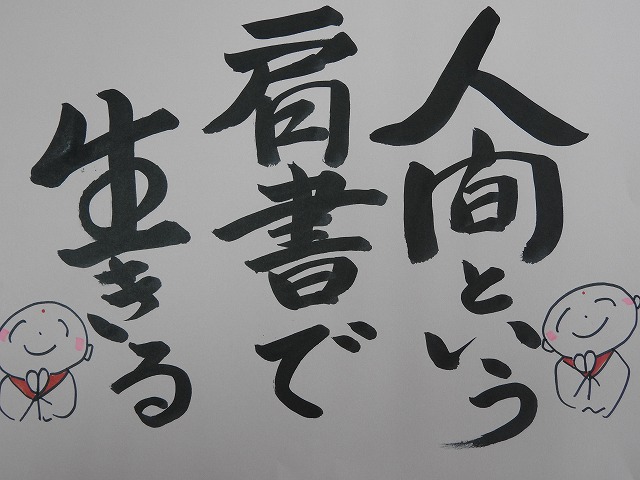 人間という
肩書で
生きる